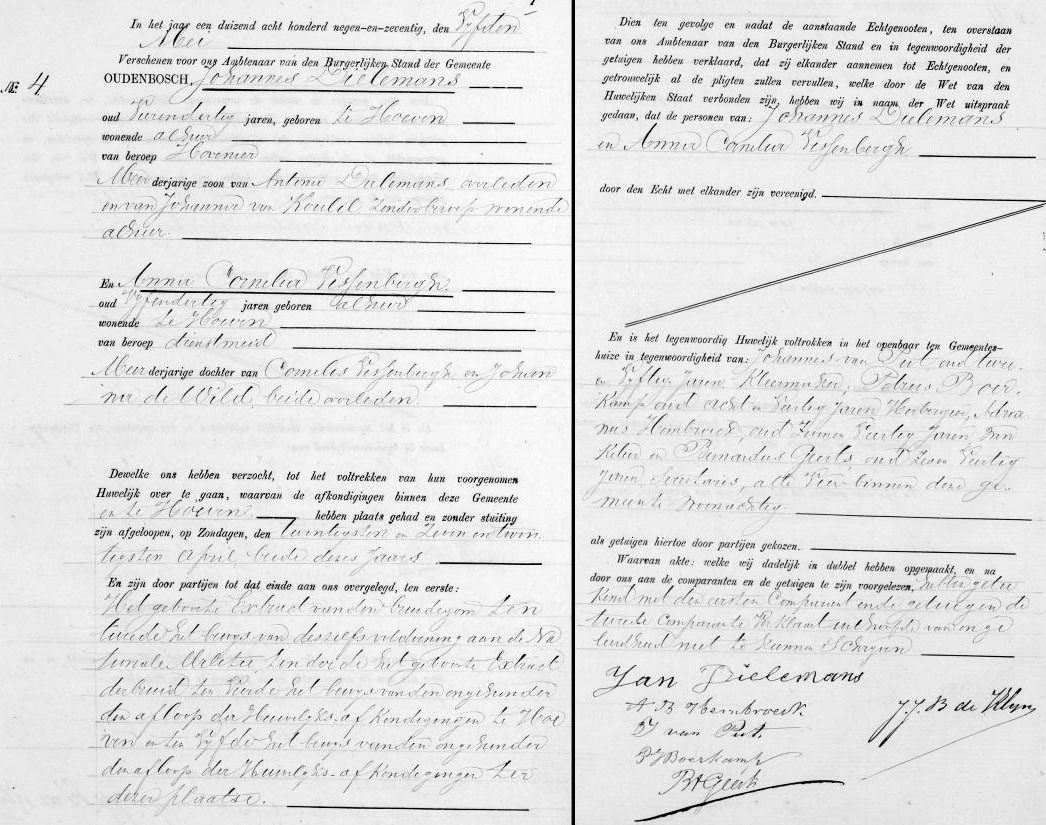 In het jaar een duizend acht honderd negen-en-zeventig, den Vyftien
Mei
Verschenen voor ons Ambtenaar van den Burgerlijken Stand der Gemeente
OUDENBOSCH, Johannes Dielemans
№ 4
oud Vierendertig jaren, geboren te Hoeven
wonende alhier
van beroep Hovenier
Meerderjarige zoon van Antonie Dielemans overleden
en van Johanna van zonder beroep wonende
alhier.
En Anna Cornelia Vissenbergh
oud Vyfendertig jaren geboren alhier
wonende te Hoeven
van beroep dienstmeid
Meerderjarige dochter van Cornelis Vissenbergh en Johan
na de Wild, beide overleden
Dewelke ons hebben verzocht, tot het voltrekken van hun voorgenomen
Huwelijk over te gaan, waarvan de afkondigingen binnen deze Gemeente
en te Hoeven hebben plaats gehad en zonder stuiting
zijn afgeloopen, op Zondagen, den twintigsten en Zeven en twin
tigsten April beide dezes Jaars
En zijn door partijen tot dat einde aan ons overgelegd, ten eerste:
Het geboorte Extract van den bruidegom ten
tweede het bewys van deszelfs voldoening aan de Na
tionale Militie, ten derde het geboorte Extract
der bruid ten Vierde het bewys van den ongehinder
den afloop der Huwelyks-afkondigingen te Hoe
ven en ten Vyfde het bewys van den ongehinder
den afloop der Huwelyks-afkondigingen ter
dezer plaatse.
Dien ten gevolge en nadat de aanstaande Echtgenooten, ten overstaan
van ons Ambtenaar van den Burgerlijken Stand en in tegenwoordigheid der
getuigen hebben verklaard, dat zij elkander aannemen tot Echtgenooten, en
getrouwelijk al de pligten zullen vervullen, welke door de Wet van den
Huwelijken Staat verbonden zijn, hebben wij in naam der Wet uitspraak
gedaan, dat de personen van: Johannes Dielemans
en Anna Cornelia Vissenbergh
door den Echt met elkander zijn vereenigd.
En is het tegenwoordig Huwelijk voltrokken in het openbaar ten Gemeentes-
huize in tegenwoordigheid van: Johannes van Pul, oud twee
en Vyftig Jaren Kleermaker, Petrus Boer
kamp oud acht en Veertig Jaren Herbergier, Adria
nus Hembroeck, oud Zeven en Veertig Jaren Win
kelier en Bernardus Geerts, oud Zeven Veertig
Jaren Secretaris, alle Vier binnen deze ge-
meente woonachtig
als getuigen hiertoe door partijen gekozen.
Waarvan akte: welke wij dadelijk in dubbel hebben opgemaakt, en na
door ons aan de comparanten en de getuigen te zijn voorgelezen, hebben getee
kend met den eersten Comparant en de getuigen de
tweede Comparante Verklaart uit hoofde van onge
leerdheid niet te kunnen Schryven
Jan Dielemans
A B Hembroeck.
J van Put.
P Boerkamp
B H Geerts
J. J. B de Klyn